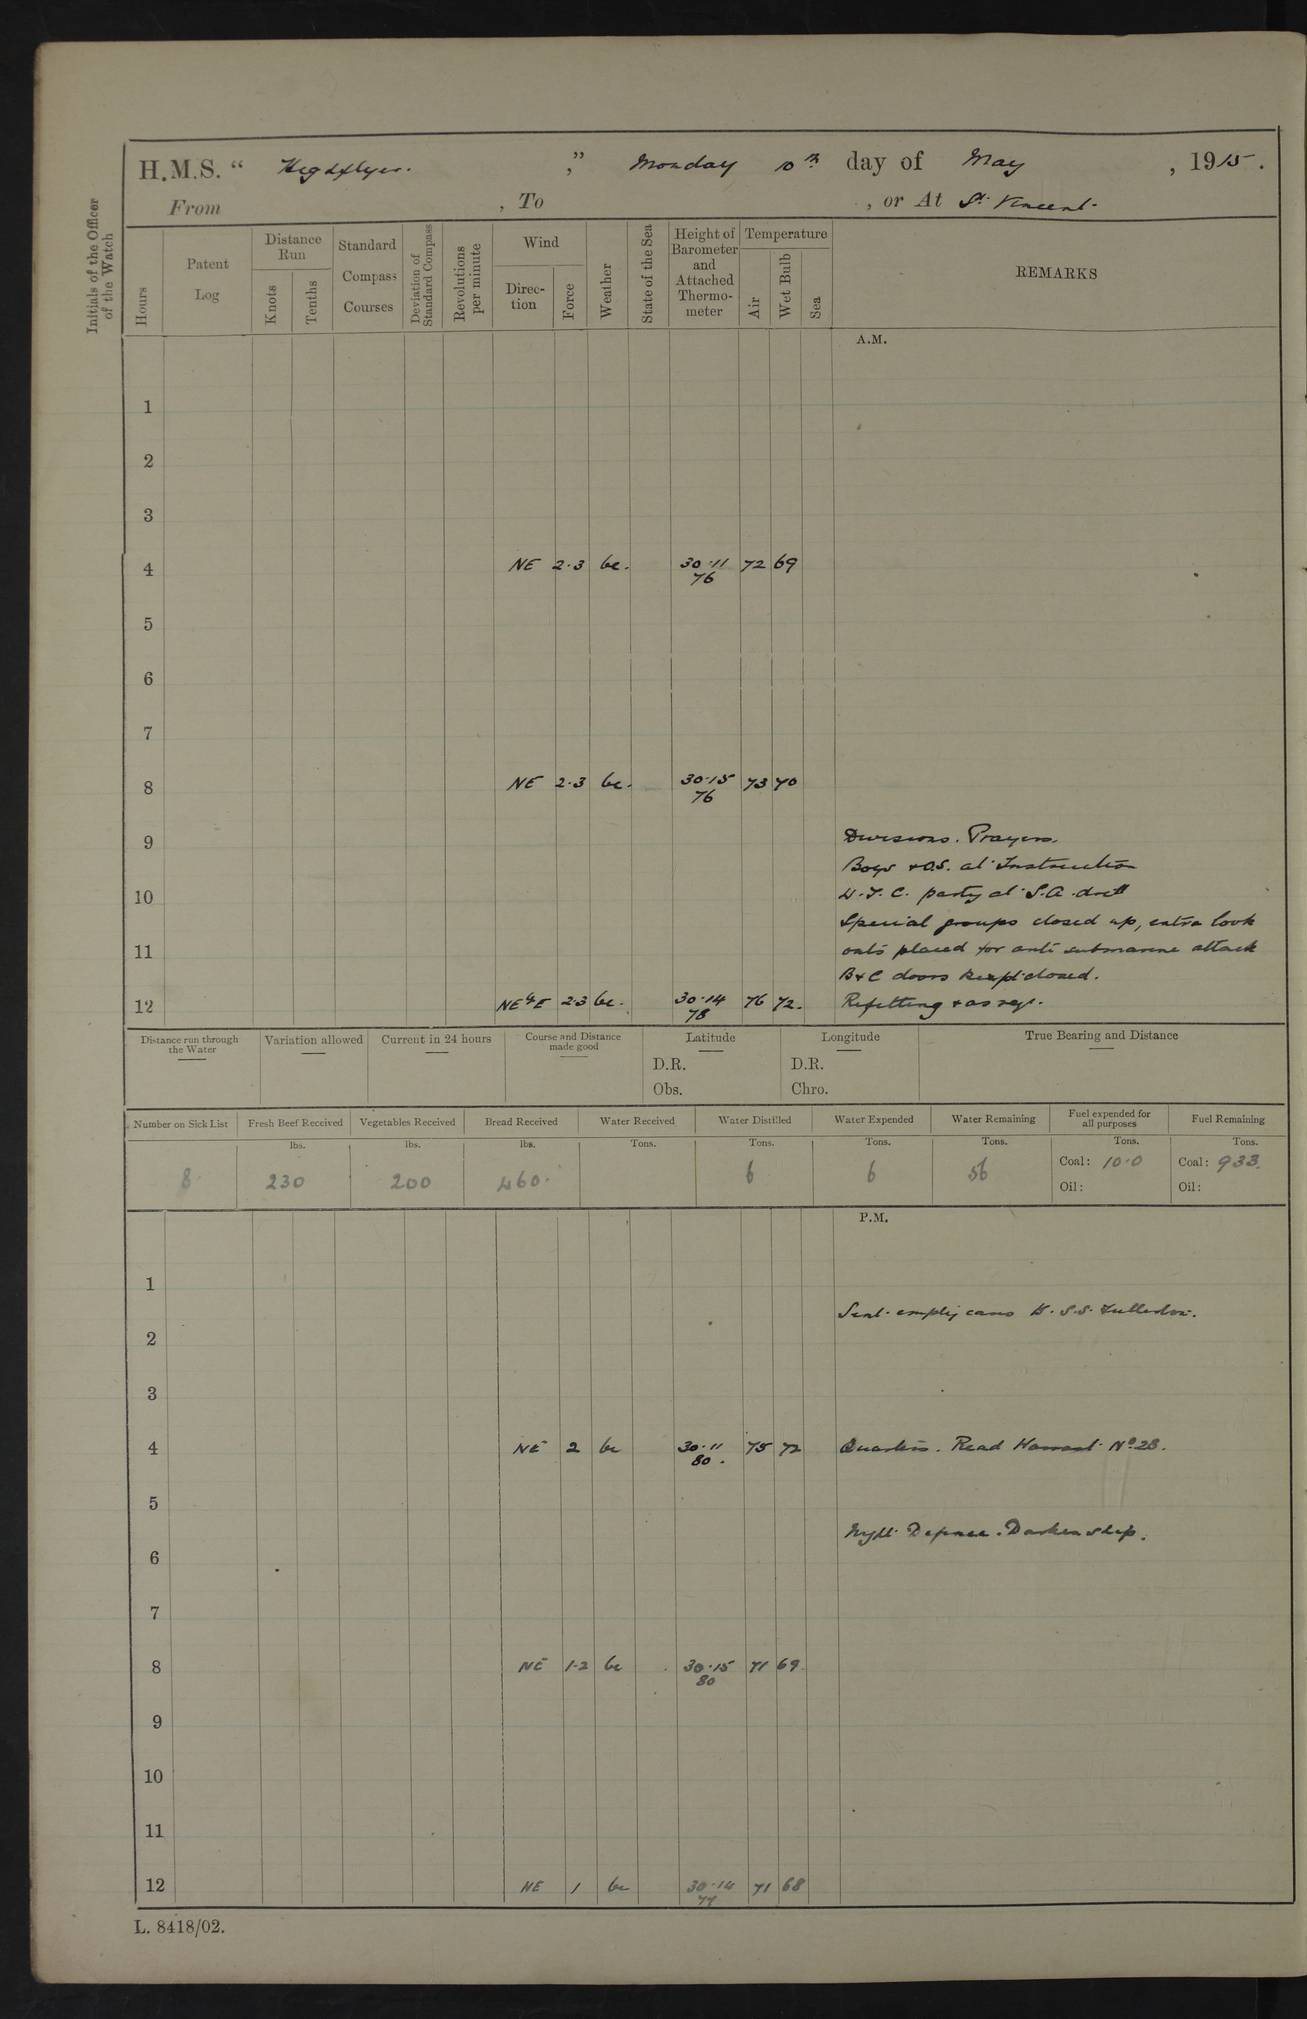 H.M.S. “ Highflyer. ” , Monday 10th day of May , 1915 .
From , To , or At St. Vincent.
Initials of the Officer of the Watch
Hours
Patent Log
Distance Run
Knots
Tenths
Standard Compass Courses
Deviation of Standard Compass
Revolutions per minute
Wind
Direction
Force
Weather
State of the Sea
Height of Barometer and Attached Thermometer
Temperature
Air
Wet Bulb
Sea
REMARKS
A.M.
1
2
3
4 NE 2·3 bc. 30·11 76 72 69
5
6
7
8 NE 2·3 bc. 30·15 76 73 70
9 Divisions. Prayers.
Boys + OS. at Instruction
10 party at S.A. drill
Special groups closed up, extra look
11 outs placed for anti submarine attack
B+C doors kept closed.
12 NE by E 2·3 bc. 30·14 78 76 72. Refitting + as req.
Distance run through the Water
Variation allowed
Current in 24 hours
Course and Distance made good
Latitude
D.R.
Obs.
Longitude
D.R.
Chro.
True Bearing and Distance
Number on Sick List
Fresh Beef Received
Vegetables Received
Bread Received
Water Received
Water Distilled
Water Expended
Water Remaining
Fuel expended for all purposes
Fuel Remaining
lbs. lbs. lbs. Tons. Tons. Tons. Tons. Tons. Tons.
8 230 200 460. 6 6 56 Coal: 10·0 Coal: 933.
Oil: Oil:
P.M.
1
Sent empty cans S.S.
2
3
4 NE 2 bc 30·11 80. 75 72 Quarters. Read Warrant No 28.
5
Night Defence. Darken ship.
6
7
8 NE 1·2 bc 30·15 80 71 69
9
10
11
12 NE 1 bc 30·14 77 71 68
L. 8418/02.